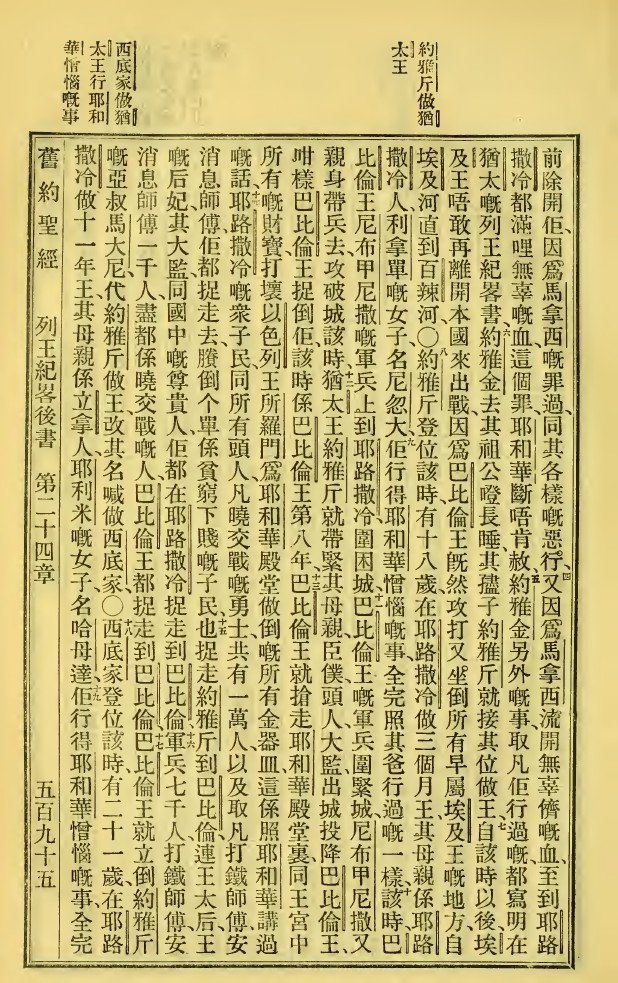 約雅斤做猶
太王
西底家做猶
太王行耶和
華憎惱嘅事
前除開佢、因爲馬拿西嘅罪過、同其各樣嘅惡行、四又因爲馬拿西流開無辜儕嘅血、至到耶路
撒冷都滿哩無辜嘅血、這個罪耶和華斷唔肯赦、五約雅金另外嘅事、取凡佢行過嘅、都寫明在
猶太嘅列王紀畧書、六約雅金去其祖公瞪長睡、其孻子約雅斤就接其位做王、七自該時以後、埃
及王唔敢再離開本國來出戰、因爲巴比倫王旣然攻打又坐倒所有早屬埃及王嘅地方、自
埃及河直到百辣河、〇八約雅斤登位該時有十八歲、在耶路撒冷做三個月王、其母親係耶路
撒冷人、利拿單嘅女子、名尼忽大、九佢行得耶和華憎惱嘅事、全完照其爸行過嘅一樣、十該時巴
比倫王尼布甲尼撒嘅軍兵上到耶路撒冷圍困城、十一巴比倫王嘅軍兵圍緊城、尼布甲尼撒又
親身帶兵去攻破城、十二該時猶太王約雅斤就帶緊其母親、臣僕、頭人、大監出城投降巴比倫王、
咁樣巴比倫王捉倒佢、該時係巴比倫王第八年、十三巴比倫王就搶走耶和華殿堂裏、同王宮中
所有嘅財寶、打壞以色列王所羅門爲耶和華殿堂做倒嘅所有金器皿、這係照耶和華講過
嘅話、十四耶路撒冷嘅衆子民、同所有頭人、凡曉交戰嘅勇士、共有一萬人、以及取凡打鐵師傅、安
消息師傅、佢都捉走去、賸倒个單係貧窮下賤嘅子民、十五也捉走約雅斤到巴比倫、連王太后、王
嘅后妃、其大監、同國中嘅尊貴人、佢都在耶路撒冷捉走到巴比倫、十六軍兵七千人、打鐵師傅、安
消息師傅一千人、盡都係曉交戰嘅人、巴比倫王都捉走到巴比倫、十七巴比倫王就立倒約雅斤
嘅亞叔馬大尼、代約雅斤做王、改其名喊做西底家、〇十八西底家登位該時有二十一歲、在耶路
撒冷做十一年王、其母親係立拿人、耶利米嘅女子、名哈母達、十九佢行得耶和華憎惱嘅事、全完
舊約聖經　列王紀畧後書　第二十四章　五百九十五